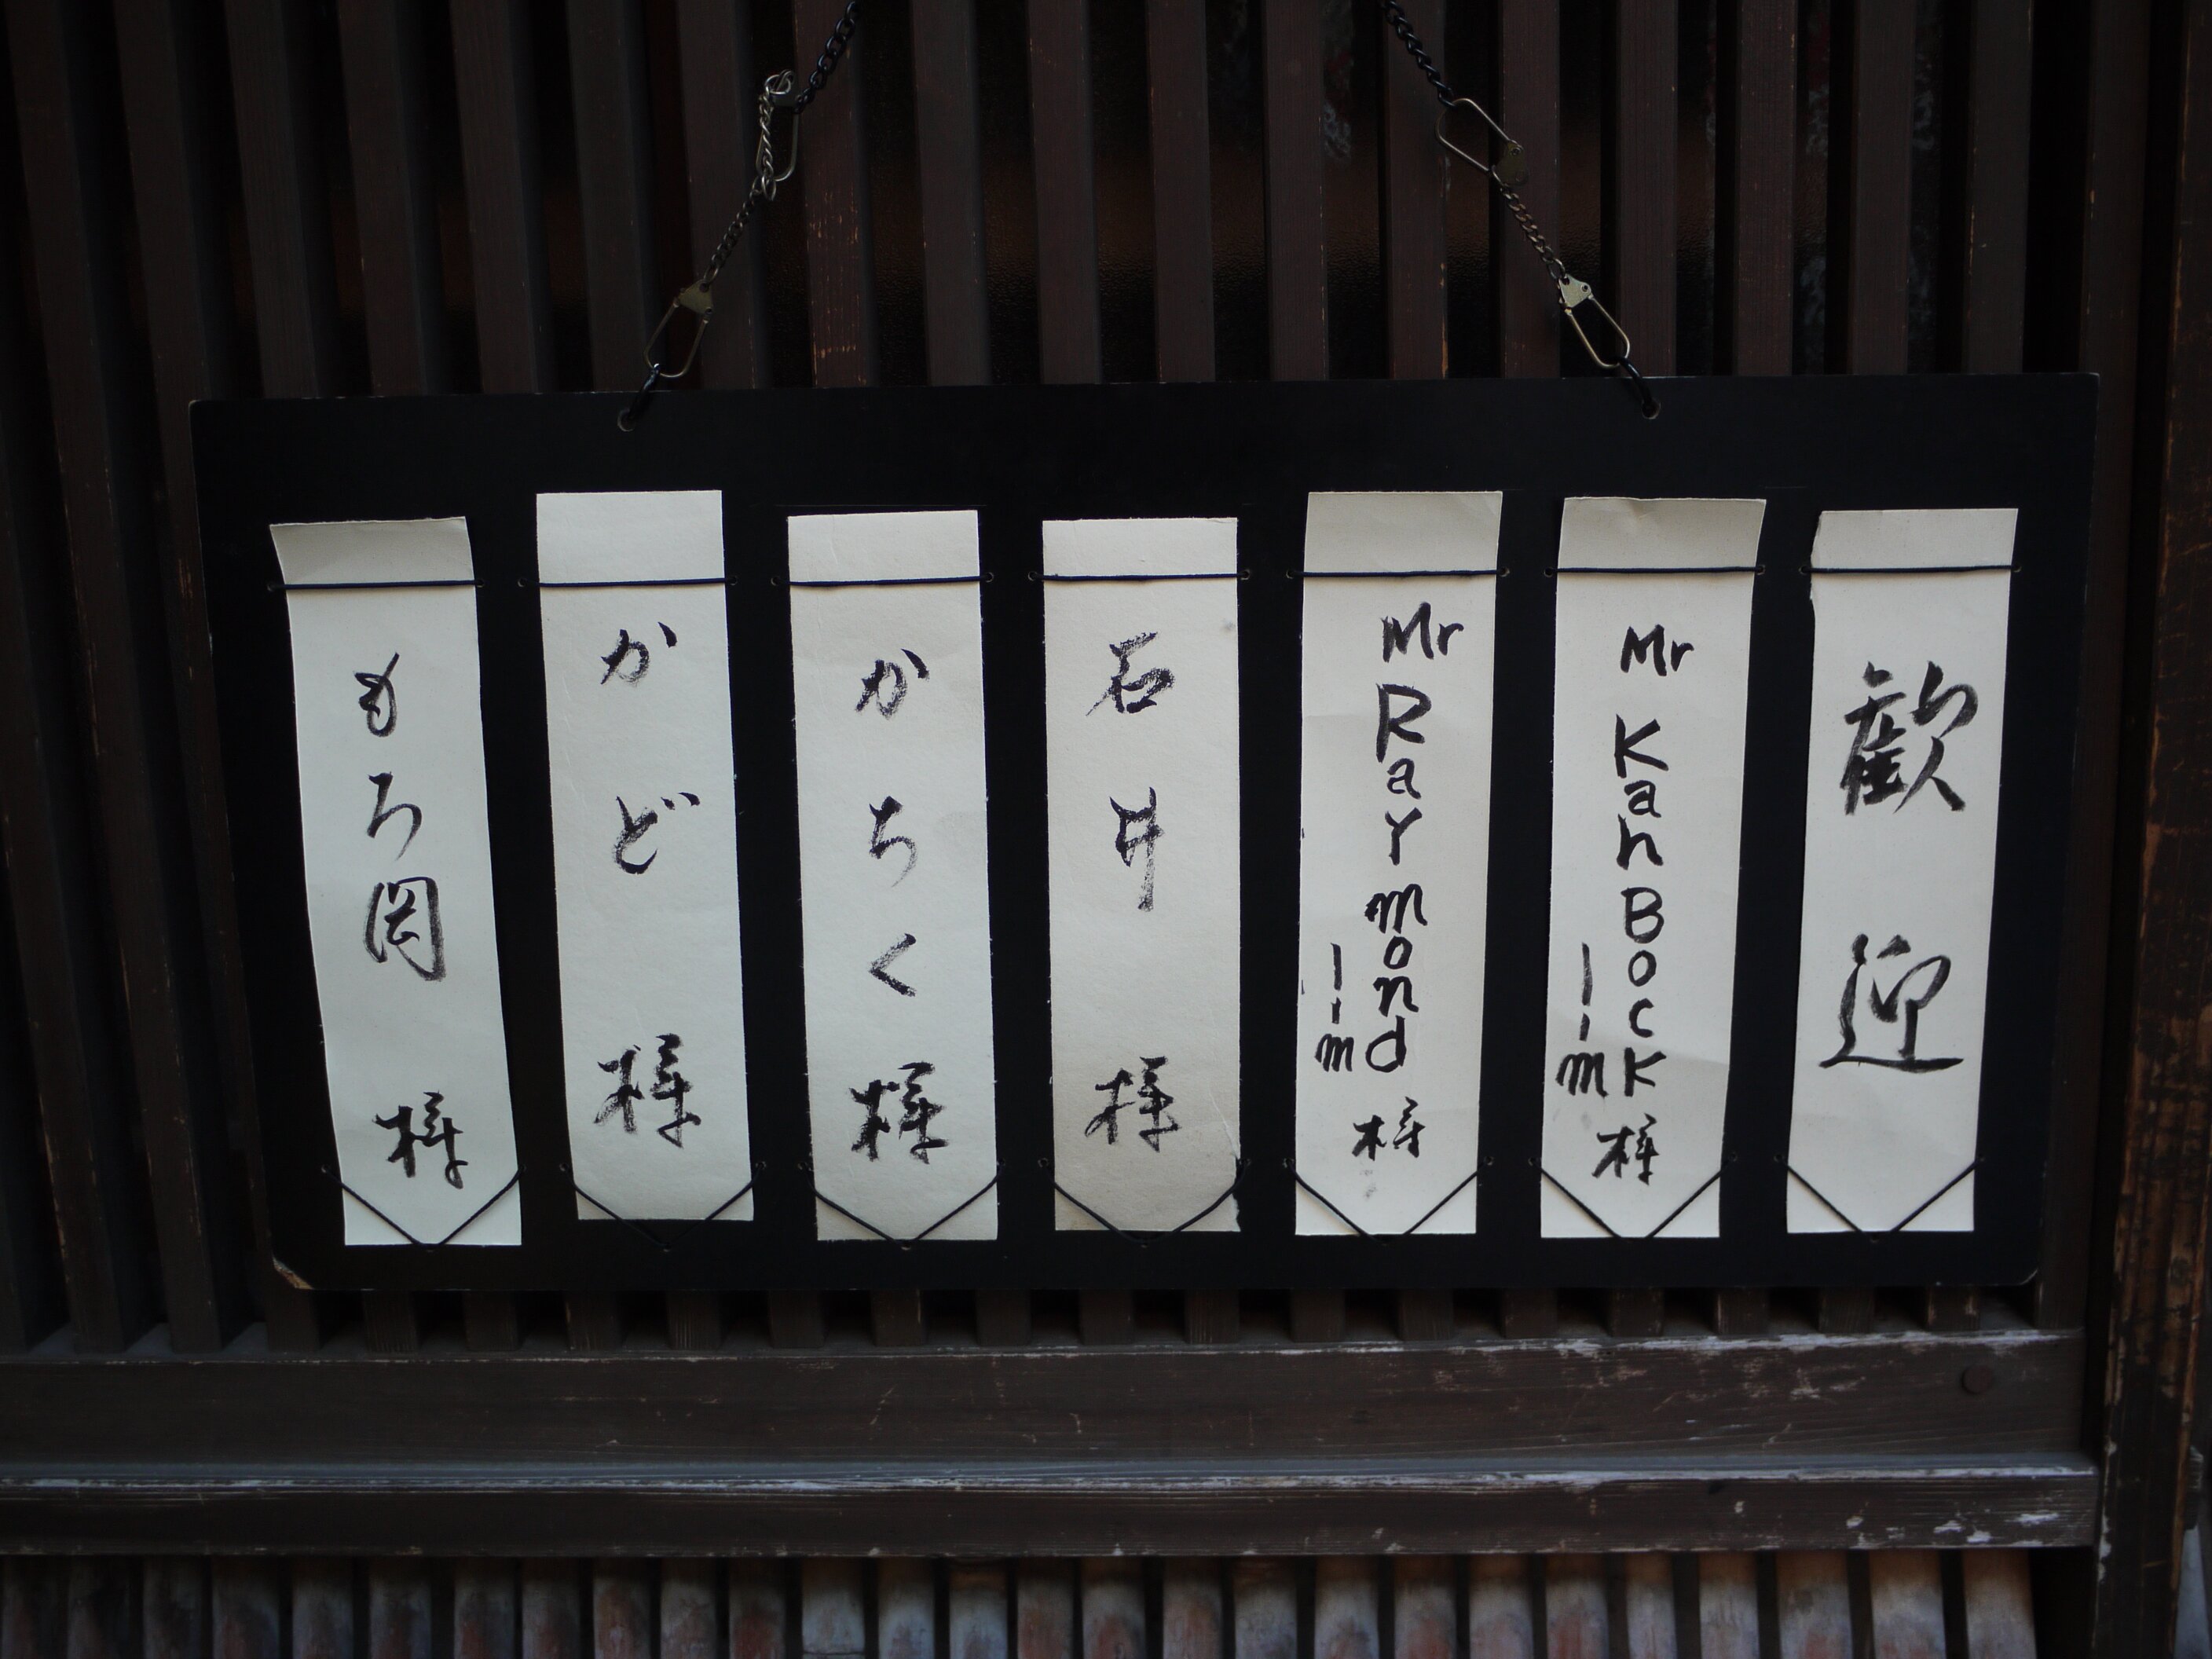 歓迎
Mr KanBock
lim様
Mr Raymond
lim様
石井様
かちく様
かど様
もろ岡様